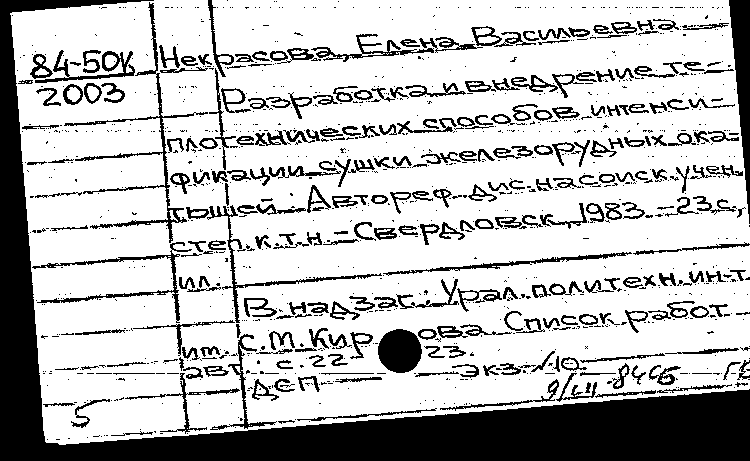 84-50К Некрасова, Елена Васильевна
2003 Разработка и внедрение те-
плотехнических способов интенси-
фикации сушки железорудных ока-
тышей: Автореф. дис. на соиск. учен.
степ. к.т.н. - Свердловск, 1983. - 23 с.,
ил.
В надзаг.: Урал. политехн. ин-т
им. С.М. Кирова. Список работ
авт.: с. 22-23.
ДСП Экз. 10.
5 9/III-84